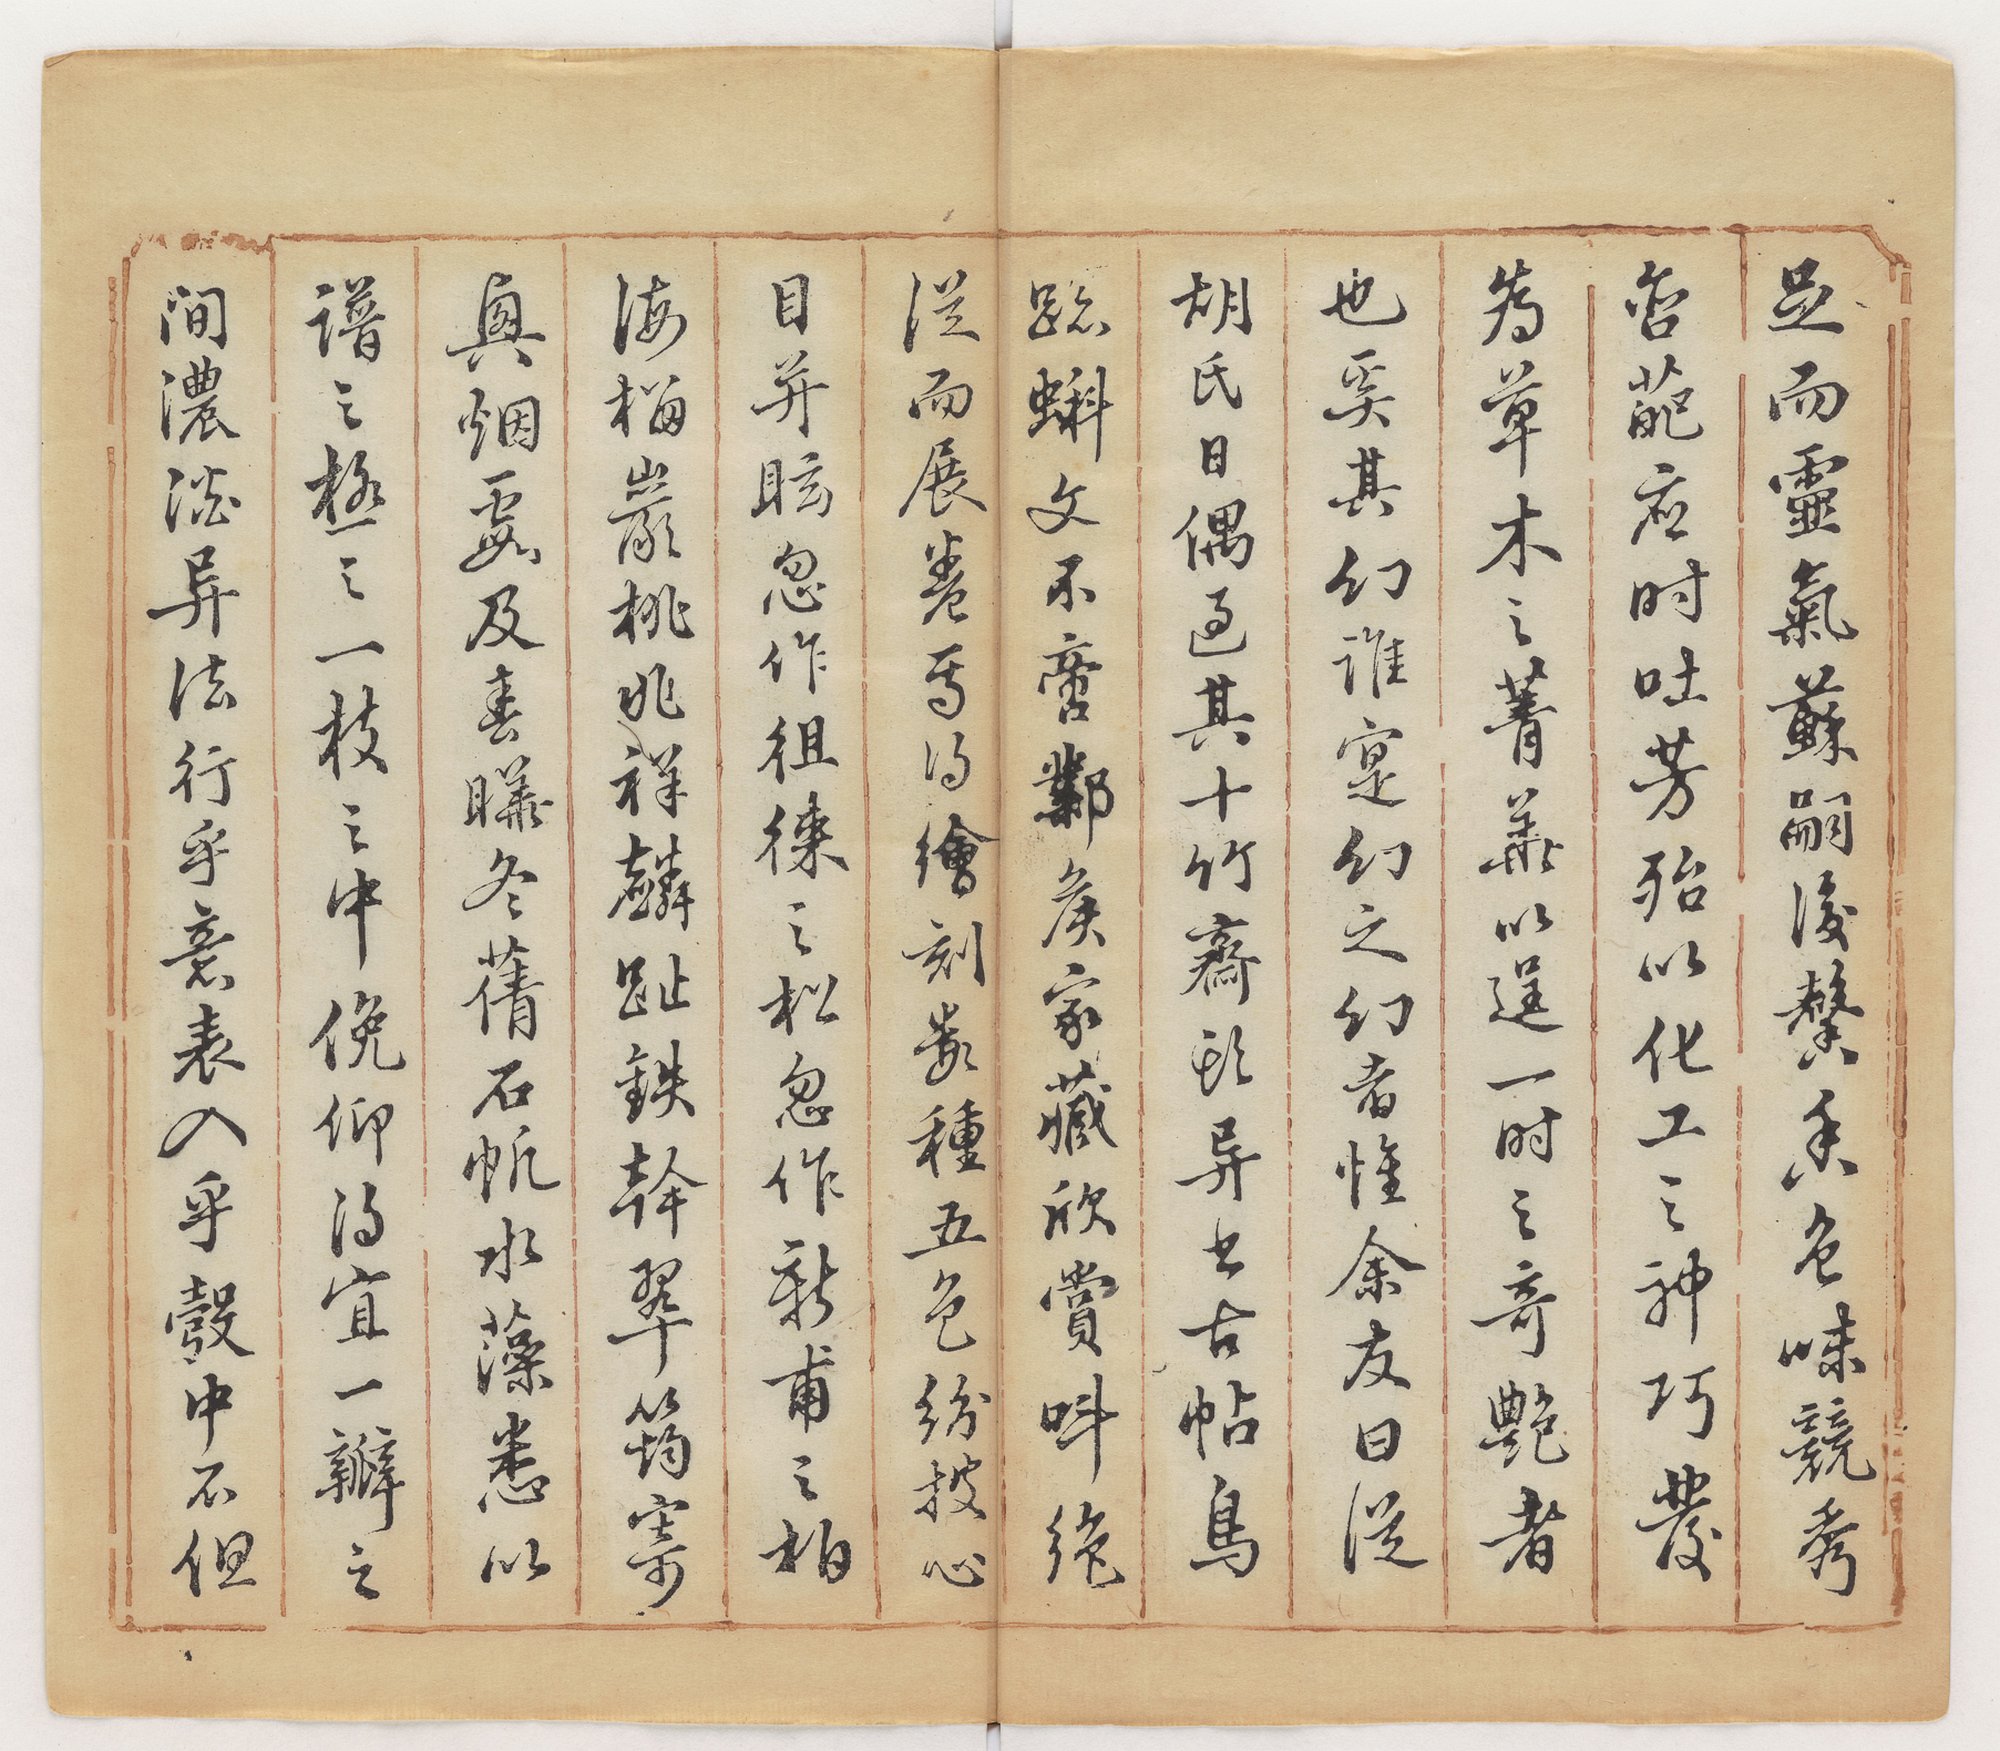 足而靈氣蘇嗣後馨香色味競秀
含葩應时吐芳殆以化工之神巧發
為草木之菁華以逞一时之奇艷者
也奚其幻誰寔幻之幻者惟余友曰從
胡氏日偶過其十竹齋頭异书古帖鳥
跡蝌文不啻鄴侯家藏欣賞叫絶
從而展卷焉得繪刻數種五色紛披心
目并眩忽作徂徠之松忽作新甫之柏
海榴巖桃兆祥麟趾鉄幹翠筠寄
興烟霞及春曦冬蒨石帆水藻悉以
譜之極之一枝之中俛仰得宜一瓣之
间濃澹异法行乎意表入乎彀中不但